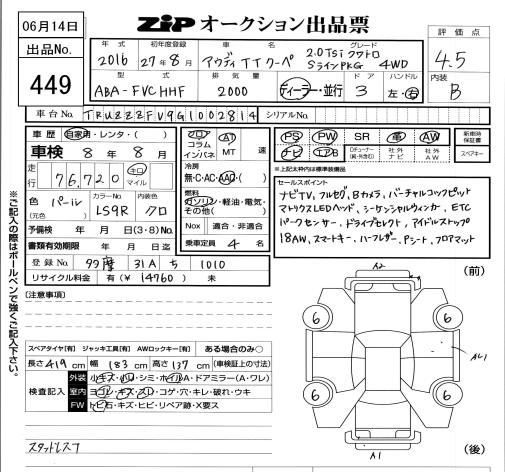 06月14日
出品No.
449
ZIP オークション出品票
評価点
4.5
内装
B
年式 初年度登録 車名 グレード
2016 27年8月 アウディ TT クーペ 2.0TSi クワトロ
SラインPKG 4WD
型式 排気量 ドア ハンドル
ABA-FVCHHF 2000 ディーラー・並行 3 左・右
車台No. TRUZZZFV9G1002814 シリアルNo.
車歴 自家用・レンタ・( )
車検 8年8月
走行 76,720 キロ マイル
色 パール カラーNo. 内装色
(元色) LS9R クロ
予備検 年 月 日(3・8)No.
書類有効期限 年 月 日迄
登録No. 31A ち 1010
リサイクル料金 有(¥14760) 未
フロア
コラム
インパネ
AT
MT 速
冷房
無・C・AC・AAC・( )
燃料
ガソリン・軽油・電気・
その他( )
Nox 適合・非適合
乗車定員 4 名
PS PW SR 革 AW
ナビ エアB
社外ナビ 社外AW
新車時保証書
スペアキー
※上記太枠内は標準装備品
セールスポイント
ナビTV、フルセグ、Bカメラ、バーチャルコックピット
マトリクスLEDヘッド、シーケンシャルウィンカー、ETC
パークセンサー、ドライブセレクト、アイドルストップ
18AW、スマートキー、ハーフレザー、Pシート、フロアマット
※ご記入の際はボールペンで強くご記入下さい。
[注意事項]
スペアタイヤ[有] ジャッキ工具[有] AWロックキー[有] ある場合のみ○
長さ 419 cm 幅 183 cm 高さ 137 cm (車検証上の寸法)
検査記入
外装 小キズ・凹・シミ・ホイルA・ドアミラー(A・ワレ)
室内 ヨゴレ・キズ・スレ・コゲ・穴・キレ・破れ・ウキ
FW トビ石・キズ・ヒビ・リペア跡・X要ス
スタッドレス
(前)
A2
6 6
AU1
6 6
A1
(後)